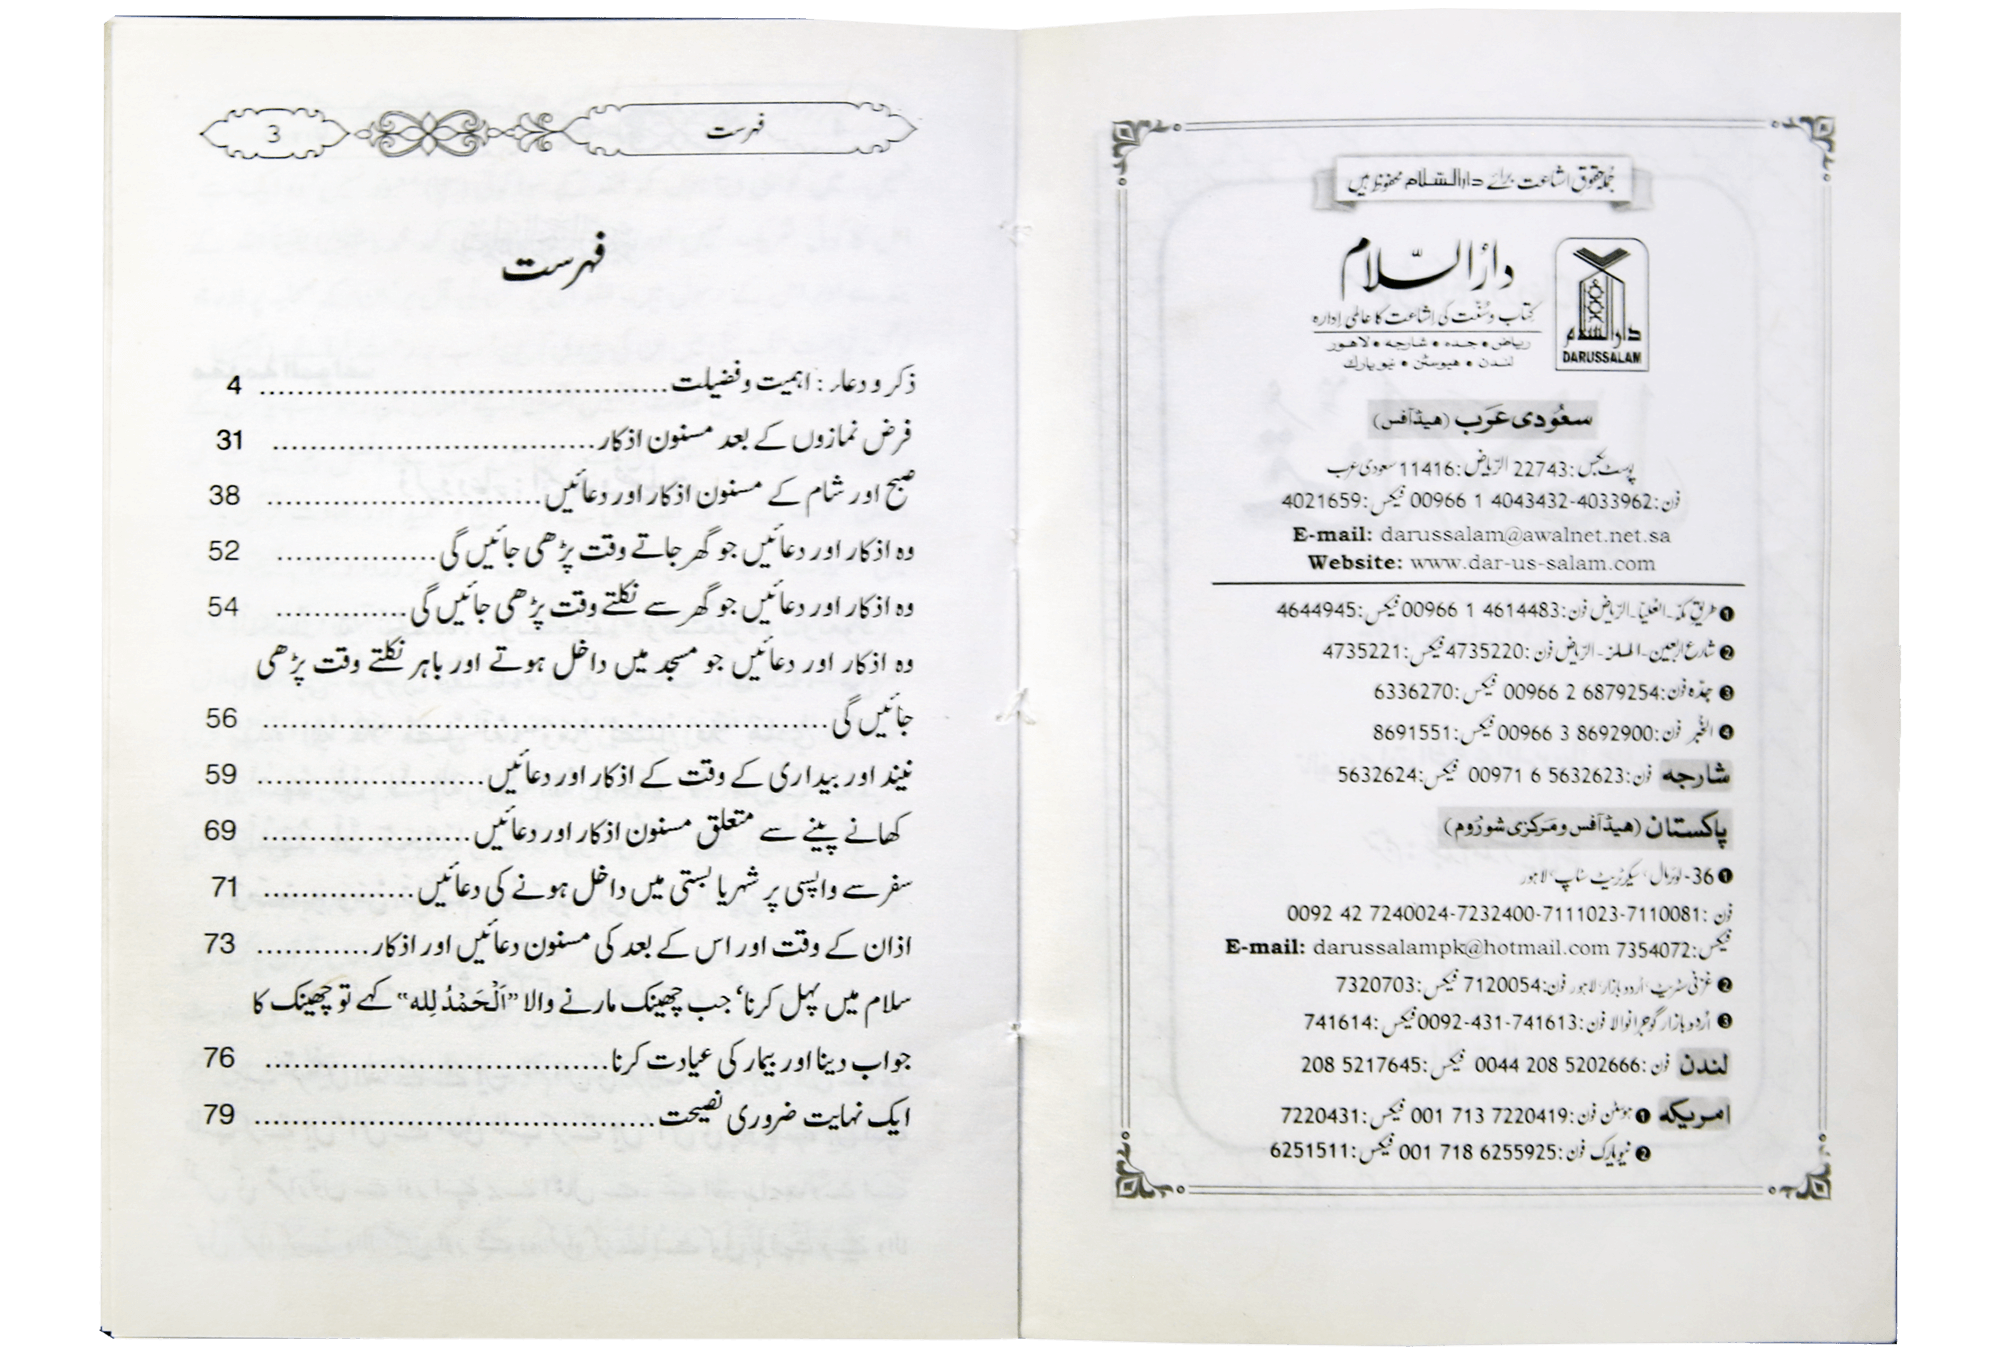 جملہ حقوق اشاعت برائے دارالسلام محفوظ ہیں
دارالسّلام
کتاب و سُنّت کی اشاعت کا عالمی ادارہ
ریاض • جدہ • شارجہ • لاہور
لندن • ھیوسٹن • نیو یارک
دارالسلام
DARUSSALAM
سعُودی عرَب (ھیڈآفس)
پوسٹ بکس:22743 الرّیاض:11416 سعودی عرب
فون:4033962-4043432 1 00966 فیکس:4021659
E-mail: darussalam@awalnet.net.sa
Website: www.dar-us-salam.com
❶ طریق مکہ۔ العُلیّا۔ الریاض فون:4614483 1 00966 فیکس:4644945
❷ شارع اربعین۔ الملز۔ الریاض فون:4735220 فیکس:4735221
❸ جدّہ فون:6879254 2 00966 فیکس:6336270
❹ الخُبر فون:8692900 3 00966 فیکس:8691551
شارجہ فون:5632623 6 00971 فیکس:5632624
پاکستان (ھیڈآفس و مَرکزی شورُوم)
❶ 36- لوئرمال، سیکرٹریٹ سٹاپ، لاہور
فون:7110081-7111023-7232400-7240024 42 0092
فیکس:7354072 E-mail: darussalampk@hotmail.com
❷ غزنی سٹریٹ، اُردو بازار، لاہور فون:7120054 فیکس:7320703
❸ اُردو بازار گوجرانوالا فون:741613-431-0092 فیکس:741614
لندن فون:5202666 208 0044 فیکس:5217645 208
امریکہ ❶ ہوسٹن فون:7220419 713 001 فیکس:7220431
❷ نیویارک فون:6255925 718 001 فیکس:6251511
فہرست 3
فہرست
ذکر و دعاء: اہمیت و فضیلت .......... 4
فرض نمازوں کے بعد مسنون اذکار .......... 31
صبح اور شام کے مسنون اذکار اور دعائیں .......... 38
وہ اذکار اور دعائیں جو گھر جاتے وقت پڑھی جائیں گی .......... 52
وہ اذکار اور دعائیں جو گھر سے نکلتے وقت پڑھی جائیں گی .......... 54
وہ اذکار اور دعائیں جو مسجد میں داخل ہوتے اور باہر نکلتے وقت پڑھی
جائیں گی .......... 56
نیند اور بیداری کے وقت کے اذکار اور دعائیں .......... 59
کھانے پینے سے متعلق مسنون اذکار اور دعائیں .......... 69
سفر سے واپسی پر شہر یا بستی میں داخل ہونے کی دعائیں .......... 71
اذان کے وقت اور اس کے بعد کی مسنون دعائیں اور اذکار .......... 73
سلام میں پہل کرنا، جب چھینک مارنے والا ”اَلْحَمْدُ لِلہ“ کہے تو چھینک کا
جواب دینا اور بیمار کی عیادت کرنا .......... 76
ایک نہایت ضروری نصیحت .......... 79